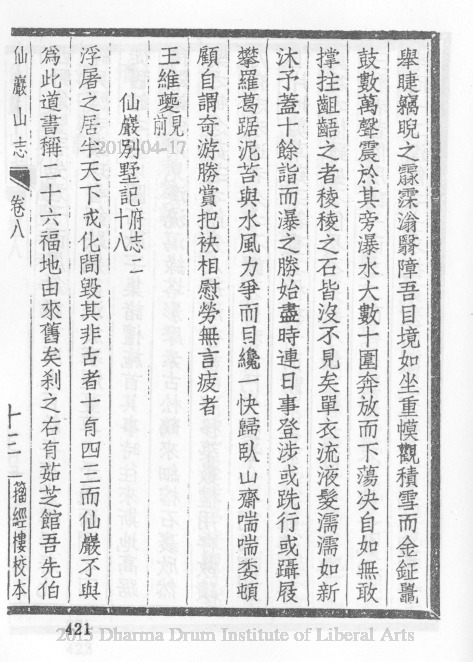 舉睫竊睨之霢霂滃翳障吾目境如坐重幙觀積雪而金鉦鼉
鼓數萬聲震於其旁瀑水大數十圍奔放而下蕩决自如無敢
撑拄齟齬之者稜稜之石皆沒不見矣單衣流液髮濡濡如新
沐予蓋十餘詣而瀑之勝始盡時連日事登涉或跣行或躡屐
攀羅葛踞泥苔與水風力爭而目纔一快歸臥山齋喘喘委頓
顧自謂奇游勝賞把袂相慰勞無言疲者
王維夔見前
仙巖別墅記府志二十八
浮屠之居半天下或化間毀其非古者十有四三而仙巖不與
爲此道書稱二十六福地由來舊矣刹之右有茹芝館吾先伯
仙巖山志
卷八
十三
籀經樓校本
2015-04-17
421
2015 Dharma Drum Institute of Liberal Arts